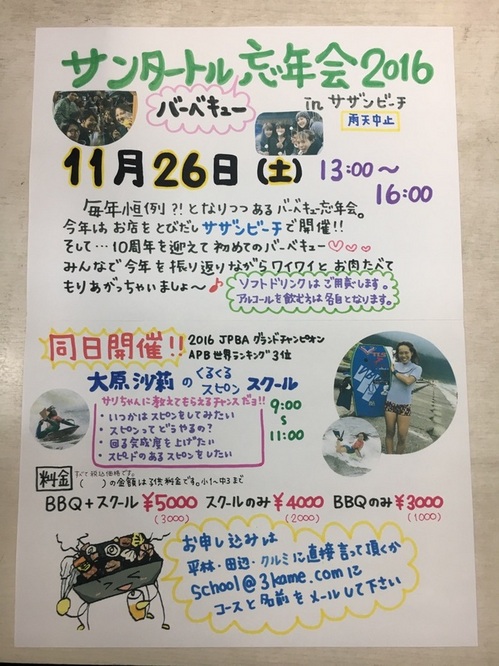 サンタートル忘年会2016
バーベキュー
in サザンビーチ
雨天中止
11月26日(土) 13:00〜
16:00
毎年恒例?!となりつつあるバーベキュー忘年会。
今年はお店をとびだしサザンビーチで開催!!
そして…10周年を迎えて初めてのバーベキュー♡♡♡
みんなで今年を振り返りながらワイワイとお肉たべて
もりあがっちゃいましょ〜♪
ソフトドリンクはご用意します。
アルコールを飲む方は各自となります。
同日開催!!
2016 JPBA グランドチャンピオン
APB 世界ランキング3位
大原沙莉のくるくるスピンスクール
サリちゃんに教えてもらえるチャンスだョ!!
・いつかはスピンをしてみたい
・スピンってどうやるの?
・回る完成度を上げたい
・スピードのあるスピンをしたい
9:00
〜
11:00
料金
すべて税込価格です。
( )の金額は子供料金です。小1〜中3まで
BBQ+スクール ¥5000 スクールのみ ¥4000 BBQのみ ¥3000
(3000) (2000) (1000)
お申し込みは
平林・田辺・クルミに直接言って頂くか
school@3kame.comに
コースと名前をメールして下さい